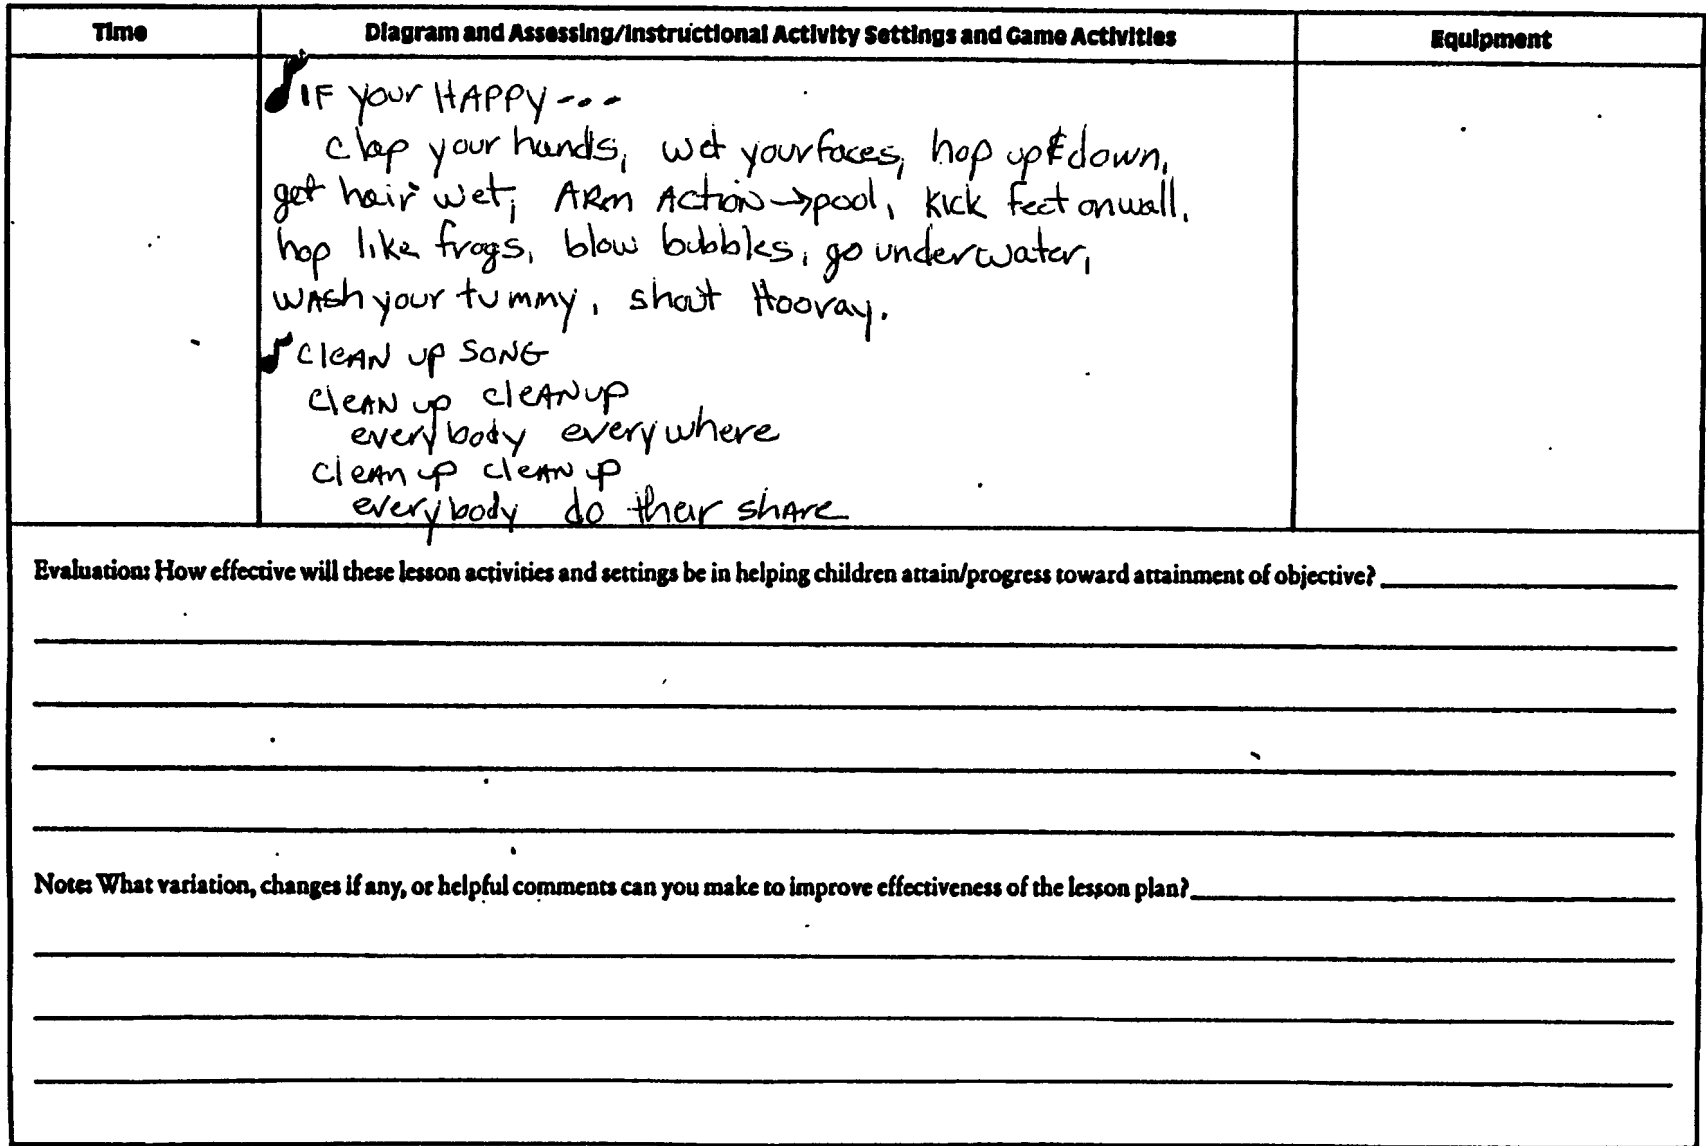 Time Diagram and Assessing/Instructional Activity Settings and Game Activities Equipment
IF your HAPPY ---
clap your hands, wet your faces, hop up & down,
get hair wet, ARm Action → pool, kick feet on wall,
hop like frogs, blow bubbles, go underwater,
wAsh your tummy, shout Hooray.
cleAN up SONG
cleAN up cleANup
everybody everywhere
cleAn up cleAN up
everybody do their shAre
Evaluation: How effective will these lesson activities and settings be in helping children attain/progress toward attainment of objective?
Note: What variation, changes if any, or helpful comments can you make to improve effectiveness of the lesson plan?